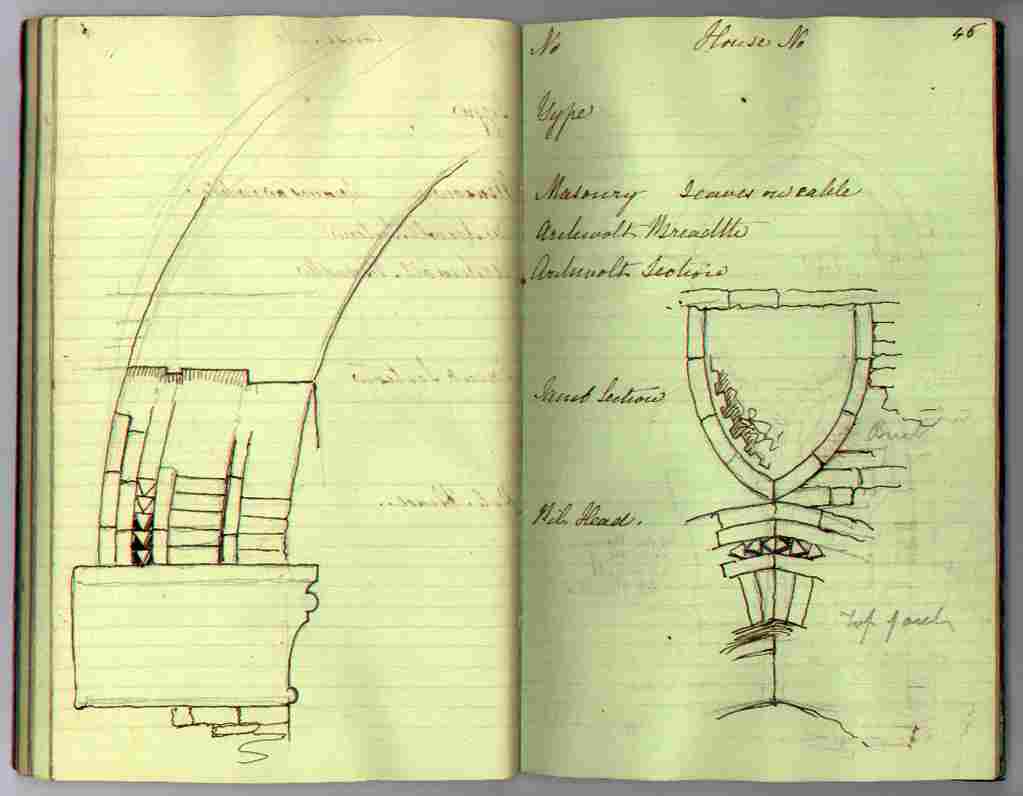 No House No 46
Type
Masonry Leaves on cable
Archivolt Breadth
Archivolt Section
Jamb Section
Brick
Pil. Head.
Top of arch